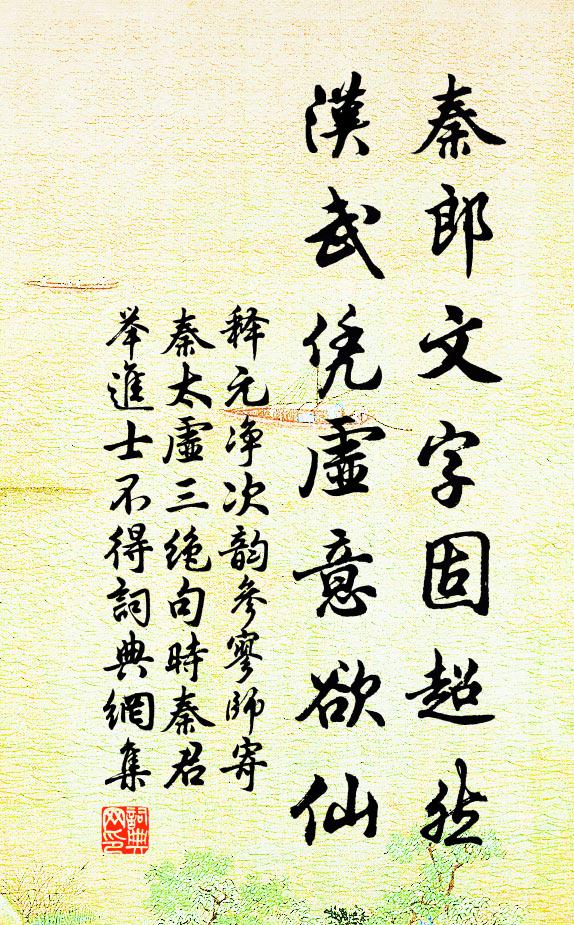 秦郎文字固超然
漢武凭虛意欲仙
释元净次韵參寥師寄
秦太虛三绝句時秦君
举進士不得詞典網集
詞典網印